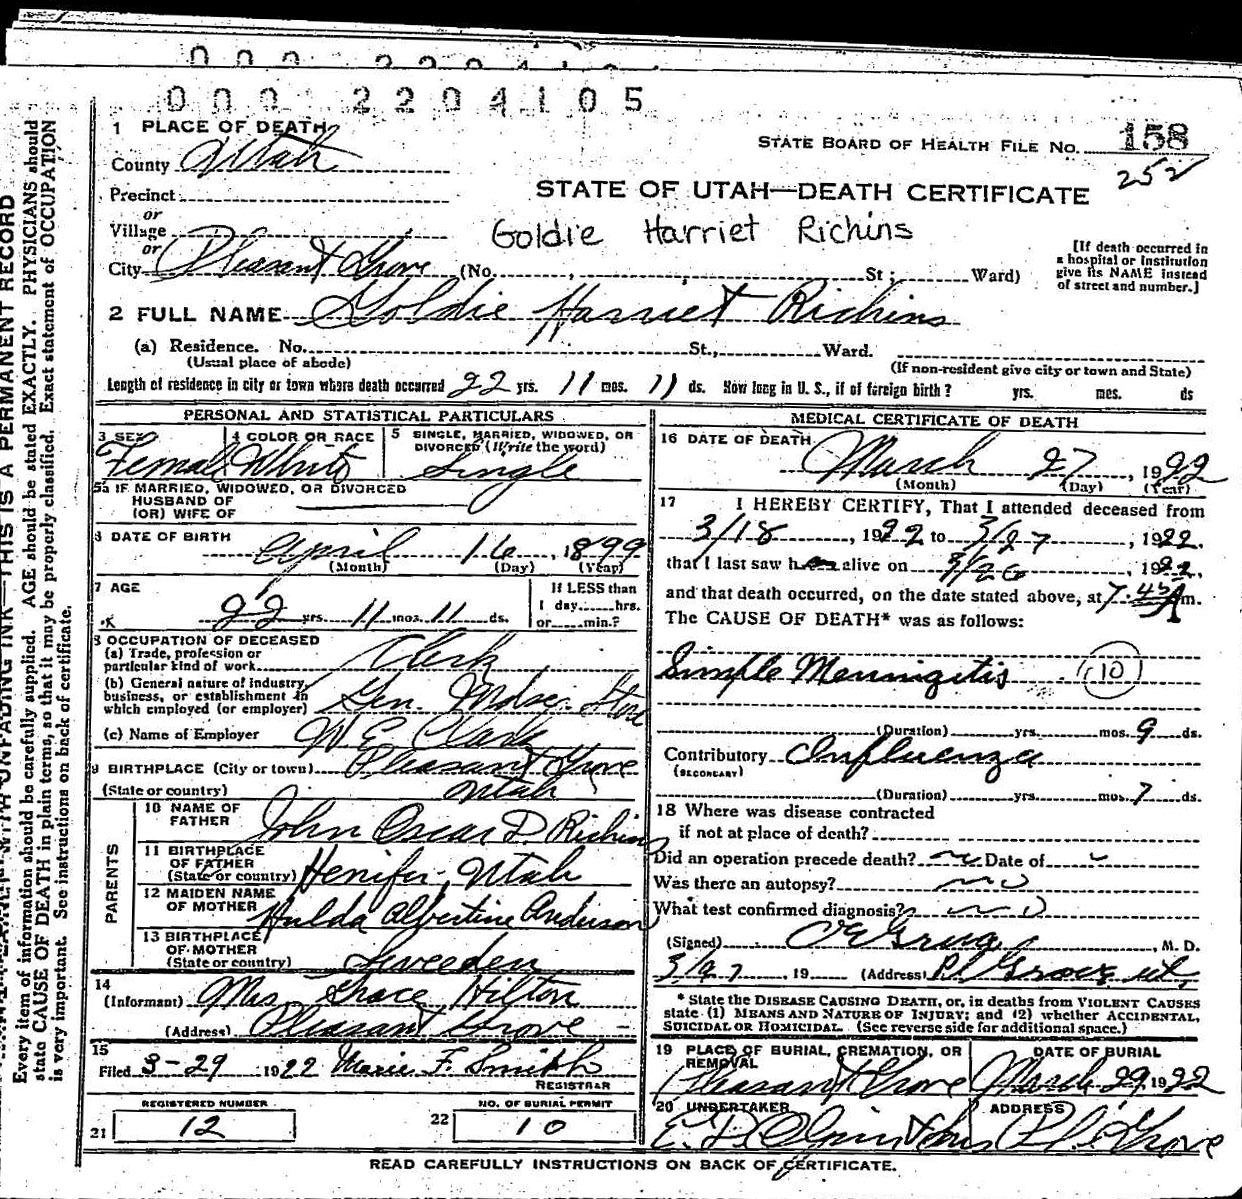 000 2204105
1 PLACE OF DEATH
County Utah
STATE BOARD OF HEALTH FILE NO. 158
252
Precinct
STATE OF UTAH—DEATH CERTIFICATE
or
Village
Goldie Harriet Richins
or
City Pleasant Grove (No. , St; Ward)
[If death occurred in
a hospital or institution
give its NAME instead
of street and number.]
2 FULL NAME Goldie Harriet Richins
(a) Residence. No. St., Ward.
(Usual place of abode)
(If non-resident give city or town and State)
Length of residence in city or town where death occurred 22 yrs. 11 mos. 11 ds. How long in U. S., if of foreign birth? yrs. mos. ds
PERSONAL AND STATISTICAL PARTICULARS
3 SEX
Female
4 COLOR OR RACE
White
5 SINGLE, MARRIED, WIDOWED, OR
DIVORCED (Write the word)
Single
5a IF MARRIED, WIDOWED, OR DIVORCED
HUSBAND OF
(OR) WIFE OF
6 DATE OF BIRTH
April 16, 1899
(Month) (Day) (Year)
7 AGE
22 yrs 11 mos 11 ds.
If LESS than
1 day, hrs.
or min.?
8 OCCUPATION OF DECEASED
(a) Trade, profession or
particular kind of work Clerk
(b) General nature of industry,
business, or establishment in
which employed (or employer) Gen. Mdse. Store
(c) Name of Employer W E Clark
9 BIRTHPLACE (City or town) Pleasant Grove
(State or country) Utah
PARENTS
10 NAME OF
FATHER John Oscar D. Richins
11 BIRTHPLACE
OF FATHER
(State or country) Henifer, Utah
12 MAIDEN NAME
OF MOTHER Hulda Albertine Anderson
13 BIRTHPLACE
OF MOTHER
(State or country) Sweeden
14
(Informant) Mrs Grace Hilton
(Address) Pleasant Grove
15
Filed 3-29 1922 Marie F. Smith
REGISTRAR
REGISTERED NUMBER
21 12
NO. OF BURIAL PERMIT
22 10
MEDICAL CERTIFICATE OF DEATH
16 DATE OF DEATH
March 27, 1922
(Month) (Day) (Year)
17 I HEREBY CERTIFY, That I attended deceased from
3/18, 1922 to 3/27, 1922.
that I last saw her alive on 3/26, 1922,
and that death occurred, on the date stated above, at 7.45 A m.
The CAUSE OF DEATH* was as follows:
Simple Meningitis (10)
(Duration) yrs. mos. 9 ds.
Contributory Influenza
(SECONDARY)
(Duration) yrs. mos. 7 ds.
18 Where was disease contracted
if not at place of death?
Did an operation precede death? no Date of
Was there an autopsy? no
What test confirmed diagnosis? no
(Signed) , M. D.
3/27, 19 (Address) Pl Grove ut.
* State the DISEASE CAUSING DEATH, or, in deaths from VIOLENT CAUSES
state (1) MEANS AND NATURE OF INJURY; and (2) whether ACCIDENTAL,
SUICIDAL OR HOMICIDAL. (See reverse side for additional space.)
19 PLACE OF BURIAL, CREMATION, OR
REMOVAL
Pleasant Grove
DATE OF BURIAL
March 29, 1922
20 UNDERTAKER
ADDRESS
Pl. Grove
READ CAREFULLY INSTRUCTIONS ON BACK OF CERTIFICATE.
THIS IS A PERMANENT RECORD
Every item of information should be carefully supplied. AGE should be stated EXACTLY. PHYSICIANS should
state CAUSE OF DEATH in plain terms, so that it may be properly classified. Exact statement of OCCUPATION
is very important. See instructions on back of certificate.